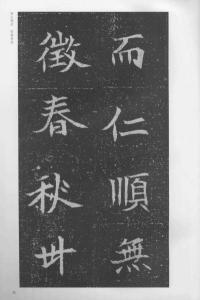 而仁順無
徵春秋卌